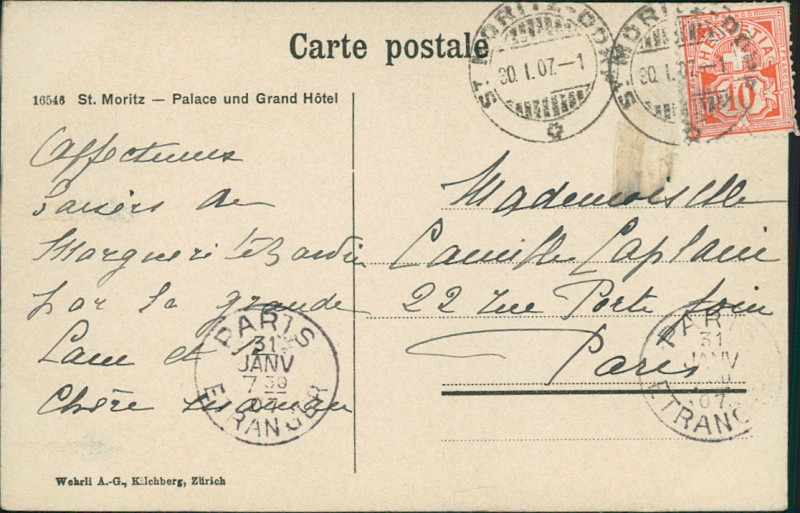 Carte postale
ST. MORITZ-DORF
30.I.07.-1
ST. MORITZ-DORF
30.I.07.-1
HELVETIA
10
16546 St. Moritz — Palace und Grand Hôtel
Affectueux
baisers de
Marguerite Bardin
par sa grande
et
Chère maman
Mademoiselle
Camille Laplaine
22 rue Porte foin
Paris
PARIS
31
JANV
7 30
07
ETRANGER
PARIS
31
JANV
07
ETRANGER
Wehrli A.-G., Kilchberg, Zürich